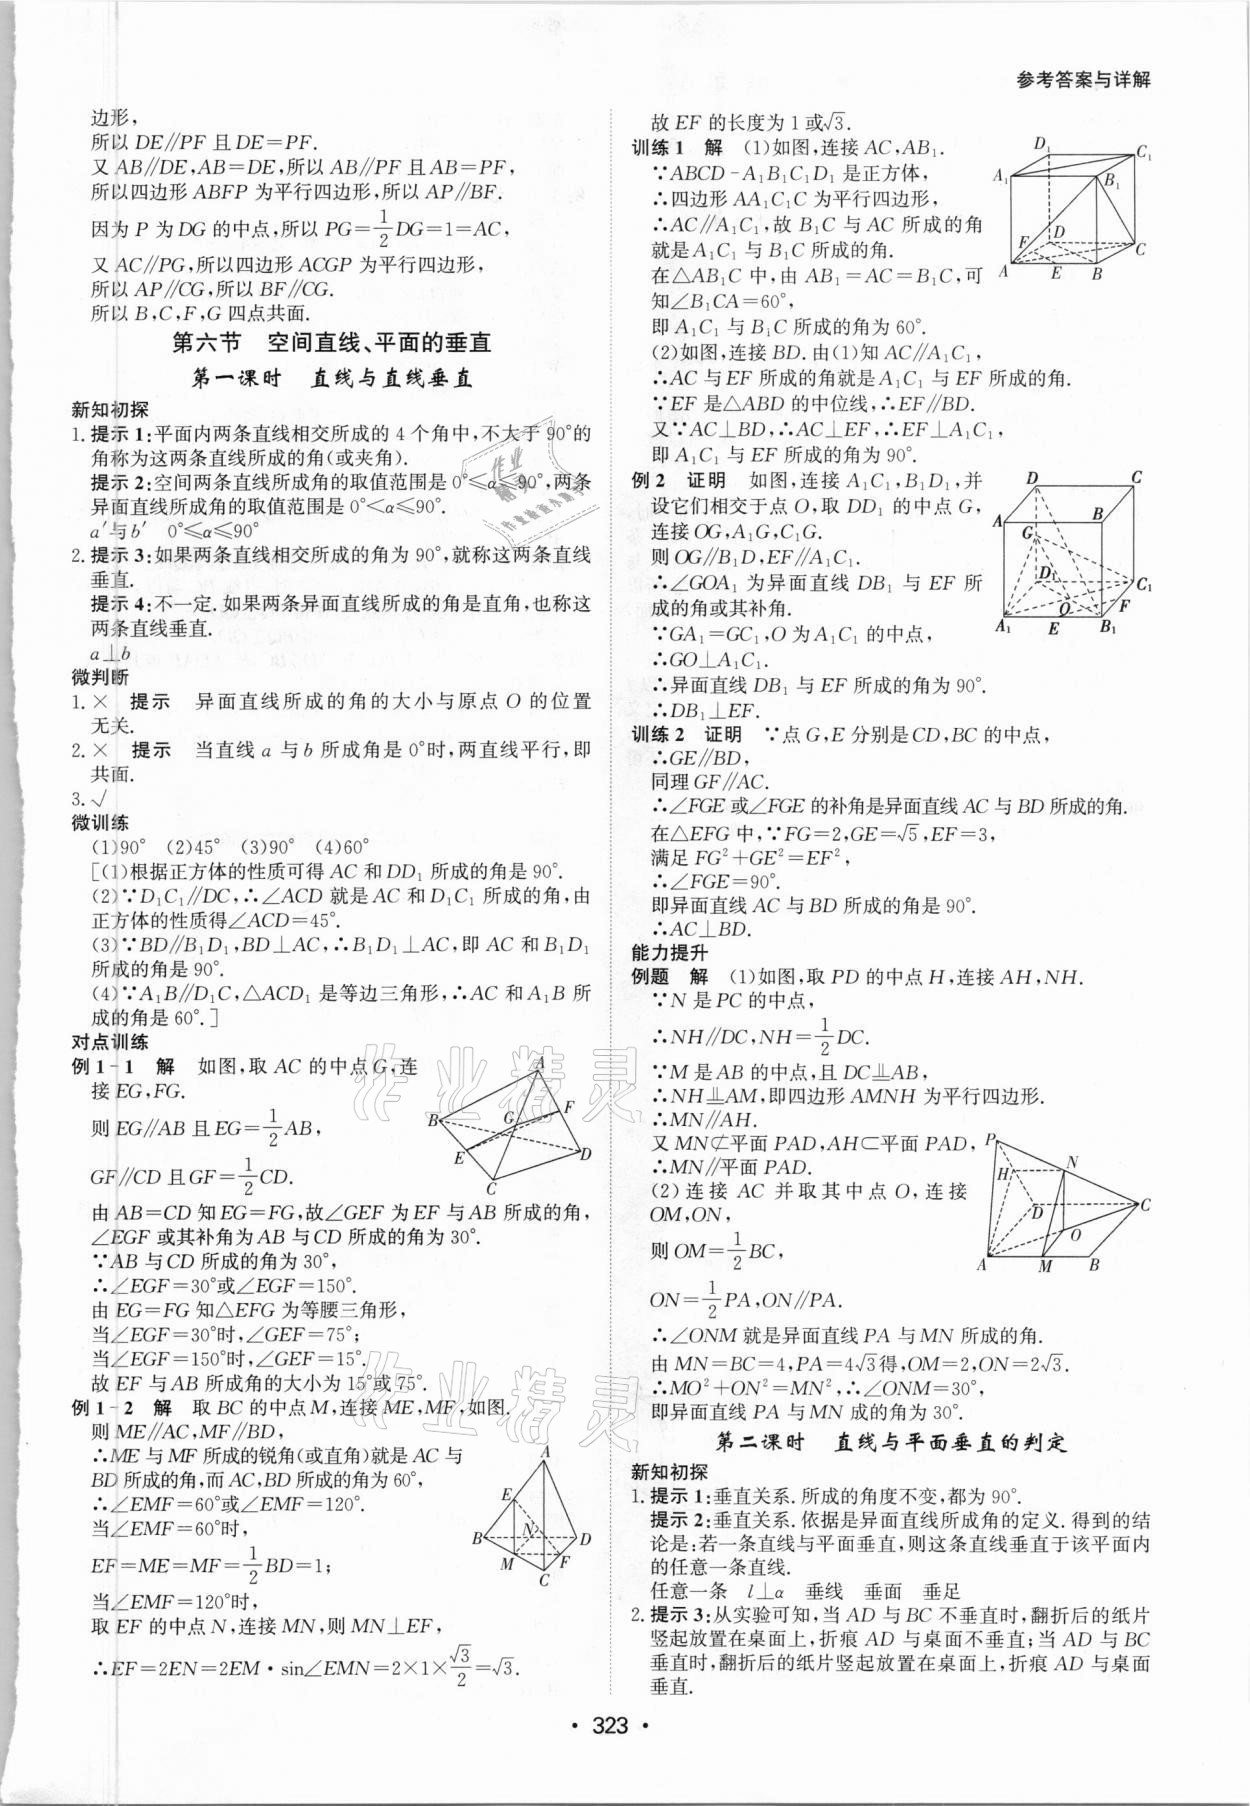 参考答案与详解
边形，
所以 DE∥PF 且 DE=PF.
又 AB∥DE,AB=DE,所以 AB∥PF 且 AB=PF,
所以四边形 ABFP 为平行四边形,所以 AP∥BF.
因为 P 为 DG 的中点,所以 PG=1/2DG=1=AC,
又 AC∥PG,所以四边形 ACGP 为平行四边形,
所以 AP∥CG,所以 BF∥CG.
所以 B,C,F,G 四点共面.
第六节 空间直线、平面的垂直
第一课时 直线与直线垂直
新知初探
1. 提示 1:平面内两条直线相交所成的 4 个角中,不大于 90°的
角称为这两条直线所成的角(或夹角).
提示 2:空间两条直线所成角的取值范围是 0°≤α≤90°,两条
异面直线所成角的取值范围是 0°<α≤90°.
a′与 b′ 0°≤α≤90°
2. 提示 3:如果两条直线相交所成的角为 90°,就称这两条直线
垂直.
提示 4:不一定.如果两条异面直线所成的角是直角,也称这
两条直线垂直.
a⊥b
微判断
1. × 提示 异面直线所成的角的大小与原点 O 的位置
无关.
2. × 提示 当直线 a 与 b 所成角是 0°时,两直线平行,即
共面.
3. √
微训练
(1)90° (2)45° (3)90° (4)60°
[(1)根据正方体的性质可得 AC 和 DD₁ 所成的角是 90°.
(2)∵D₁C₁∥DC,∴∠ACD 就是 AC 和 D₁C₁ 所成的角,由
正方体的性质得∠ACD=45°.
(3)∵BD∥B₁D₁,BD⊥AC,∴B₁D₁⊥AC,即 AC 和 B₁D₁
所成的角是 90°.
(4)∵A₁B∥D₁C,△ACD₁ 是等边三角形,∴AC 和 A₁B 所
成的角是 60°.]
对点训练
例 1-1 解 如图,取 AC 的中点 G,连
接 EG,FG.
则 EG∥AB 且 EG=1/2AB,
GF∥CD 且 GF=1/2CD.
由 AB=CD 知 EG=FG,故∠GEF 为 EF 与 AB 所成的角,
∠EGF 或其补角为 AB 与 CD 所成的角为 30°.
∵AB 与 CD 所成的角为 30°,
∴∠EGF=30°或∠EGF=150°.
由 EG=FG 知△EFG 为等腰三角形,
当∠EGF=30°时,∠GEF=75°;
当∠EGF=150°时,∠GEF=15°.
故 EF 与 AB 所成角的大小为 15°或 75°.
A
B
G
F
E
D
C
例 1-2 解 取 BC 的中点 M,连接 ME,MF,如图.
则 ME∥AC,MF∥BD,
∴ME 与 MF 所成的锐角(或直角)就是 AC 与
BD 所成的角,而 AC,BD 所成的角为 60°,
∴∠EMF=60°或∠EMF=120°.
当∠EMF=60°时,
EF=ME=MF=1/2BD=1;
当∠EMF=120°时,
取 EF 的中点 N,连接 MN,则 MN⊥EF,
∴EF=2EN=2EM·sin∠EMN=2×1×√3/2=√3.
A
E
B
N
D
M
F
C
故 EF 的长度为 1 或√3.
训练 1 解 (1)如图,连接 AC,AB₁.
∵ABCD-A₁B₁C₁D₁ 是正方体,
∴四边形 AA₁C₁C 为平行四边形,
∴AC∥A₁C₁,故 B₁C 与 AC 所成的角
就是 A₁C₁ 与 B₁C 所成的角.
在△AB₁C 中,由 AB₁=AC=B₁C,可
知∠B₁CA=60°,
即 A₁C₁ 与 B₁C 所成的角为 60°.
(2)如图,连接 BD.由(1)知 AC∥A₁C₁,
∴AC 与 EF 所成的角就是 A₁C₁ 与 EF 所成的角.
∵EF 是△ABD 的中位线,∴EF∥BD.
又∵AC⊥BD,∴AC⊥EF,∴EF⊥A₁C₁,
即 A₁C₁ 与 EF 所成的角为 90°.
D₁
C₁
A₁
B₁
F
D
C
A
E
B
例 2 证明 如图,连接 A₁C₁,B₁D₁,并
设它们相交于点 O,取 DD₁ 的中点 G,
连接 OG,A₁G,C₁G.
则 OG∥B₁D,EF∥A₁C₁.
∴∠GOA₁ 为异面直线 DB₁ 与 EF 所
成的角或其补角.
∵GA₁=GC₁,O 为 A₁C₁ 的中点,
∴GO⊥A₁C₁.
∴异面直线 DB₁ 与 EF 所成的角为 90°.
∴DB₁⊥EF.
D
C
A
B
G
D₁
C₁
O
F
A₁
E
B₁
训练 2 证明 ∵点 G,E 分别是 CD,BC 的中点,
∴GE∥BD,
同理 GF∥AC.
∴∠FGE 或∠FGE 的补角是异面直线 AC 与 BD 所成的角.
在△EFG 中,∵FG=2,GE=√5,EF=3,
满足 FG²+GE²=EF²,
∴∠FGE=90°.
即异面直线 AC 与 BD 所成的角是 90°.
∴AC⊥BD.
能力提升
例题 解 (1)如图,取 PD 的中点 H,连接 AH,NH.
∵N 是 PC 的中点,
∴NH∥DC,NH=1/2DC.
∵M 是 AB 的中点,且 DC⊥∥AB,
∴NH⊥∥AM,即四边形 AMNH 为平行四边形.
∴MN∥AH.
又 MN⊄平面 PAD,AH⊂平面 PAD,
∴MN∥平面 PAD.
(2)连接 AC 并取其中点 O,连接
OM,ON,
则 OM=1/2BC,
ON=1/2PA,ON∥PA.
∴∠ONM 就是异面直线 PA 与 MN 所成的角.
由 MN=BC=4,PA=4√3得,OM=2,ON=2√3.
∴MO²+ON²=MN²,∴∠ONM=30°,
即异面直线 PA 与 MN 成的角为 30°.
P
H
N
D
C
O
A
M
B
第二课时 直线与平面垂直的判定
新知初探
1. 提示 1:垂直关系.所成的角度不变,都为 90°.
提示 2:垂直关系.依据是异面直线所成角的定义.得到的结
论是:若一条直线与平面垂直,则这条直线垂直于该平面内
的任意一条直线.
任意一条 l⊥α 垂线 垂面 垂足
2. 提示 3:从实验可知,当 AD 与 BC 不垂直时,翻折后的纸片
竖起放置在桌面上,折痕 AD 与桌面不垂直;当 AD 与 BC
垂直时,翻折后的纸片竖起放置在桌面上,折痕 AD 与桌面
垂直.
作业精灵
作业精灵
· 323 ·